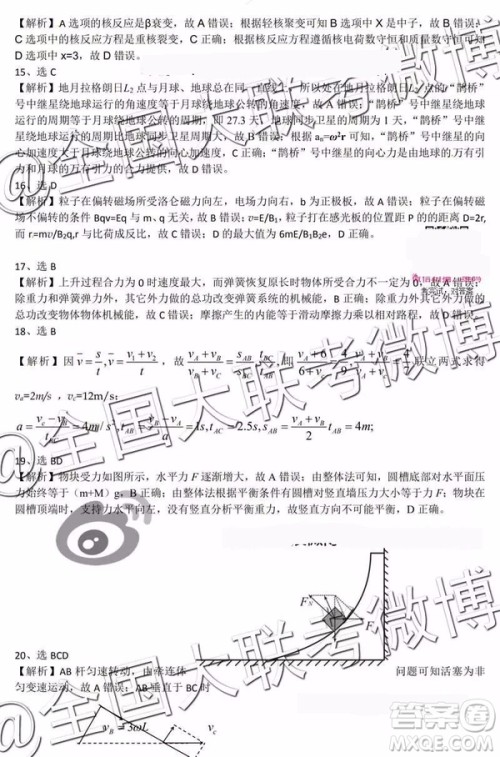 【解析】A 选项的核反应是β衰变，故 A 错误；根据轻核聚变可知 X 是中子，故 B 错误；
C 选项的核反应方程是重核裂变，C 正确；根据核反应方程遵循核电荷数守恒和质量数守恒可知
D 选项中 x=3，故 D 错误。
15、选 C
【解析】地月拉格朗日L2 点与月球、地球总在同一直线上，所以处在地月拉格朗日点的“鹊桥”
号中继星绕地球运行的角速度等于月球绕地球公转的角速度，故 A 错误；“鹊桥”号中继星绕地球
运行的周期等于月球绕地球公转的周期，即 27.3 天，地球同步卫星的周期为 1 天，“鹊桥”号中继
星绕地球运行的周期比地球同步卫星周期大，故 B 错误；根据 aₙ=ω²r 可知，“鹊桥”号中继星的向
心加速度大于月球绕地球公转的向心加速度，故 C 正确；“鹊桥”号中继星的向心力是由地球的万有引
力和月球的万有引力的合力提供，故 D 错误。
16、选 D
【解析】粒子在偏转磁场所受洛伦兹力向左，电场力向右，b 为正极板，故 A 错误；粒子在偏转磁
场不偏转的条件 Bqv=Eq 与 m、q 无关，B 错误；v=E/B₁，粒子打在感光板的位置距 P 的的距离 D=2r,
而 r=mv/B₂q,r 与比荷成反比，故 C 错误；D 的最大值为 6mE/B₁B₂e，D 正确。
17、选 B
【解析】上升过程合力为 0 时速度最大，而弹簧恢复原长时物体所受合力不一定为 0，故 A 错误；
除重力和弹簧弹力外，其它力做的总功改变弹簧系统的机械能，B 正确；除重力以外其它力做的
总功改变物体物体机械能，故 C 错误；摩擦产生的内能等于滑动摩擦力与相对路程的乘积，D 错误。
18、选 B
【解析】因 v̄=s/t，v̄=(v₁+v₂)/2，故 (v_A+v_B)/(v_B+v_C)=s_AB/s_BC · t_BC/t_AB，即 (v_A+6)/(6+v_C)=4/9 ·
v_A=2m/s，v_C=12m/s；
19、选 BD
【解析】物块受力如图所示，水平力 F 逐渐增大，故 A 错误；由整体法可知，圆槽对水平面压
力始终等于（m+M）g，B 正确；由整体法根据平衡条件有圆槽对竖直墙压力大小等于 F；物块在
圆槽顶端时，支持力水平向左，没有力与重力平衡，故竖直方向不可能平衡，D 正确。
20、选 BCD
【解析】AB 杆匀速转动，由牵连体
问题可知活塞为非
匀变速运动，故 A 错误；AB 垂直于 BC时
@全国大联考微博